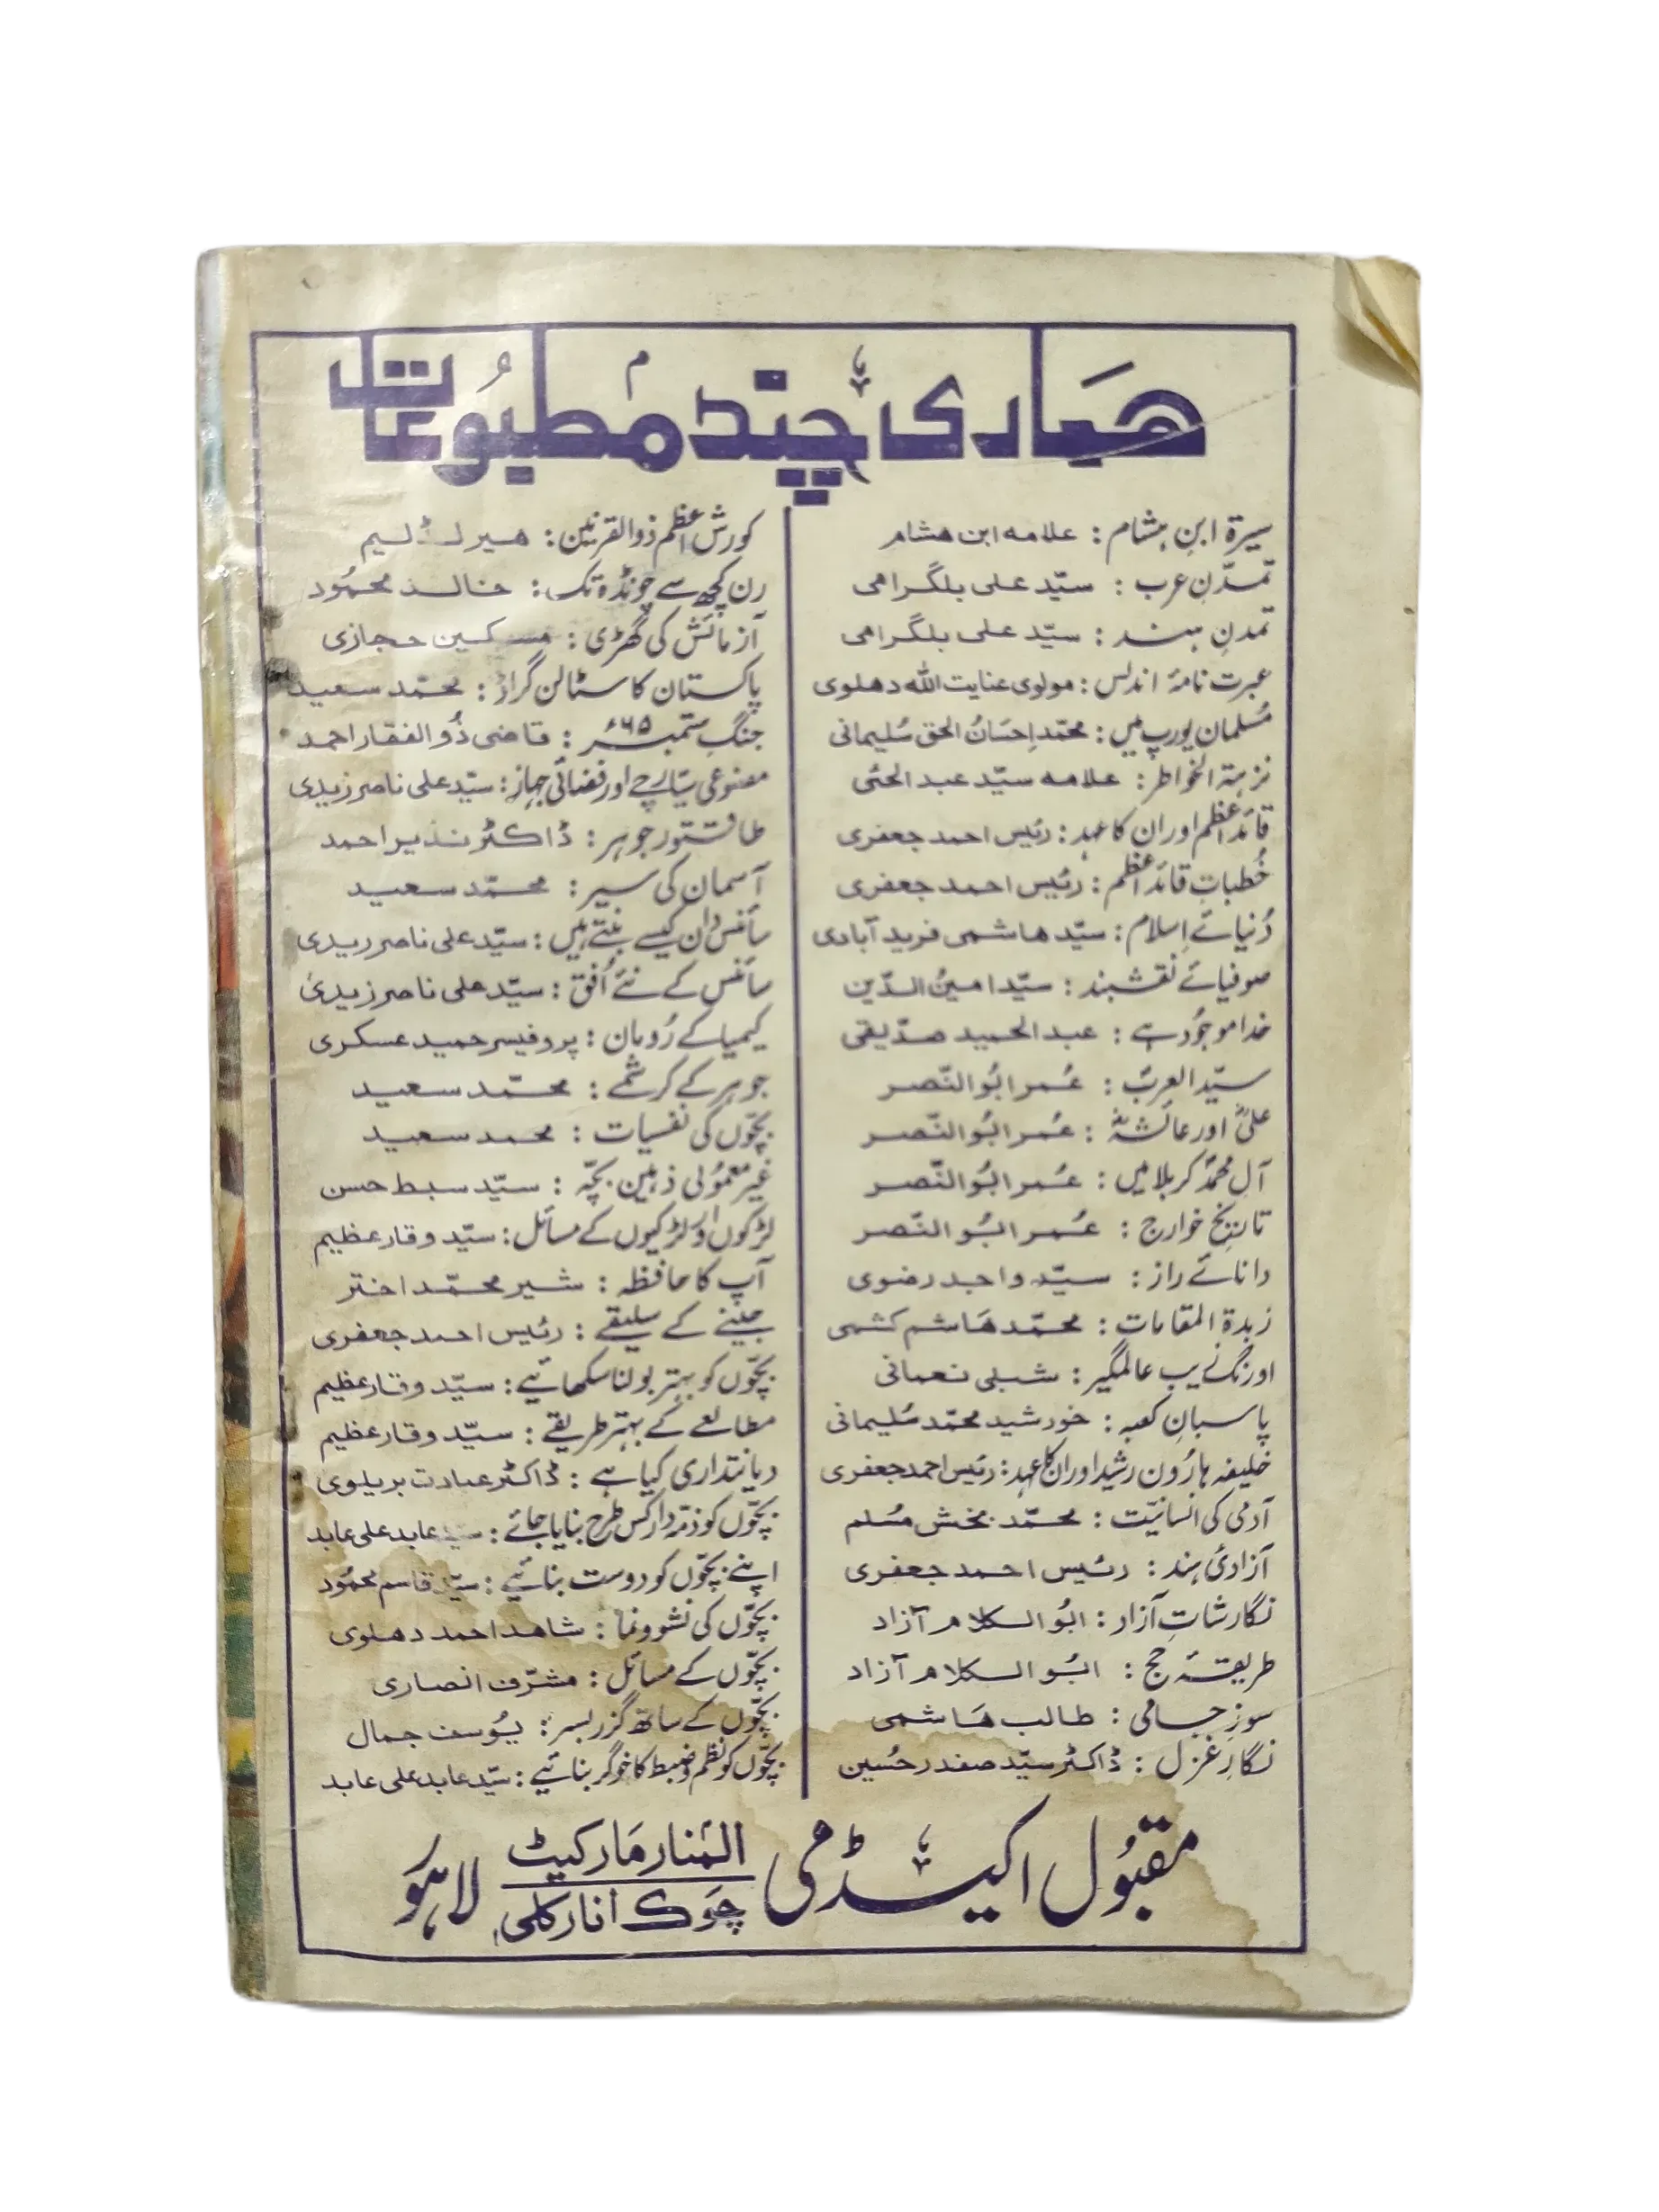 ہماری چند مطبوعات
سیرۃ ابنِ ہشام : علامہ ابن ہشام
تمدّنِ عرب : سیّد علی بلگرامی
تمدنِ ہند : سیّد علی بلگرامی
عبرت نامۂ اندلس : مولوی عنایت اللہ دہلوی
مُسلمان یورپ میں : محمّد اِحسَانُ الحق سُلیمانی
نزہتہ الخواطر : علامہ سیّد عبد الحئی
قائدِ اعظم اور ان کا عہد : رئیس احمد جعفری
خُطباتِ قائدِ اعظم : رئیس احمد جعفری
دُنیائے اِسلام : سیّد ہاشمی فرید آبادی
صوفیائے نقشبند : سیّد امینُ الدّین
خدا موجُود ہے : عبد الحمید صدّیقی
سیّد العربؐ : عُمر ابُو النّصر
علیؓ اور عائشہؓ : عُمر ابُو النّصر
آلِ محمّدؐ کربلا میں : عُمر ابُو النّصر
تاریخِ خوارج : عُمر ابُو النّصر
دانائے راز : سیّد واجد رضوی
زبدۃ المقامات : محمّد ہَاشم کشمی
اورنگ زیب عالمگیر : شبلی نعمانی
پاسبانِ کعبہ : خورشید محمّد سُلیمانی
خلیفہ ہارُون رشید اور ان کا عہد : رئیس احمد جعفری
آدمی کی انسانیّت : محمّد بخش مُسلم
آزادیٔ ہند : رئیس احمد جعفری
نگارشاتِ آزاد : ابُو الکلام آزاد
طریقۂ حج : ابُو الکلام آزاد
سوزِ جامی : طالب ہَاشمی
نگارِ غزل : ڈاکٹر سیّد صفدر حُسین
کورشِ اعظم ذوالقرنین : ہیرلڈ لیم
رن کچھ سے چونڈہ تک : خالد محمُود
آزمائش کی گھڑی : مسکین حجازی
پاکستان کا سٹالن گراڈ : محمّد سعید
جنگِ ستمبر ۶۵ء : قاضی ذُوالفقار احمد
مصنوعی سیّارچے اور فضائی جہاز : سیّد علی ناصر زیدی
طاقتور جوہر : ڈاکٹر نذیر احمد
آسمان کی سیر : محمّد سعید
سائنس دان کیسے بنتے ہیں : سیّد علی ناصر زیدی
سائنس کے نئے اُفق : سیّد علی ناصر زیدی
کیمیا کے رُومان : پروفیسر حمید عسکری
جوہر کے کرشمے : محمّد سعید
بچّوں کی نفسیات : محمد سعید
غیر معمُولی ذہین بچّہ : سیّد سبط حسن
لڑکوں اور لڑکیوں کے مسائل : سیّد وقار عظیم
آپ کا حافظہ : شیر محمّد اختر
جینے کے سلیقے : رئیس احمد جعفری
بچّوں کو بہتر بولنا سکھائیے : سیّد وقار عظیم
مطالعے کے بہتر طریقے : سیّد وقار عظیم
دیانتداری کیا ہے : ڈاکٹر عبادت بریلوی
بچّوں کو ذمّہ دار کس طرح بنایا جائے : سیّد عابد علی عابد
اپنے بچّوں کو دوست بنائیے : سیّد قاسم محمُود
بچّوں کی نشوونما : شاہد احمد دہلوی
بچّوں کے مسائل : مشرّف انصاری
بچّوں کے ساتھ گزر بسر : یُوسف جمال
بچّوں کو نظم و ضبط کا خوگر بنائیے : سیّد عابد علی عابد
مقبُول اکیڈمی المنار مَارکیٹ چَوک انارکلی لاہور